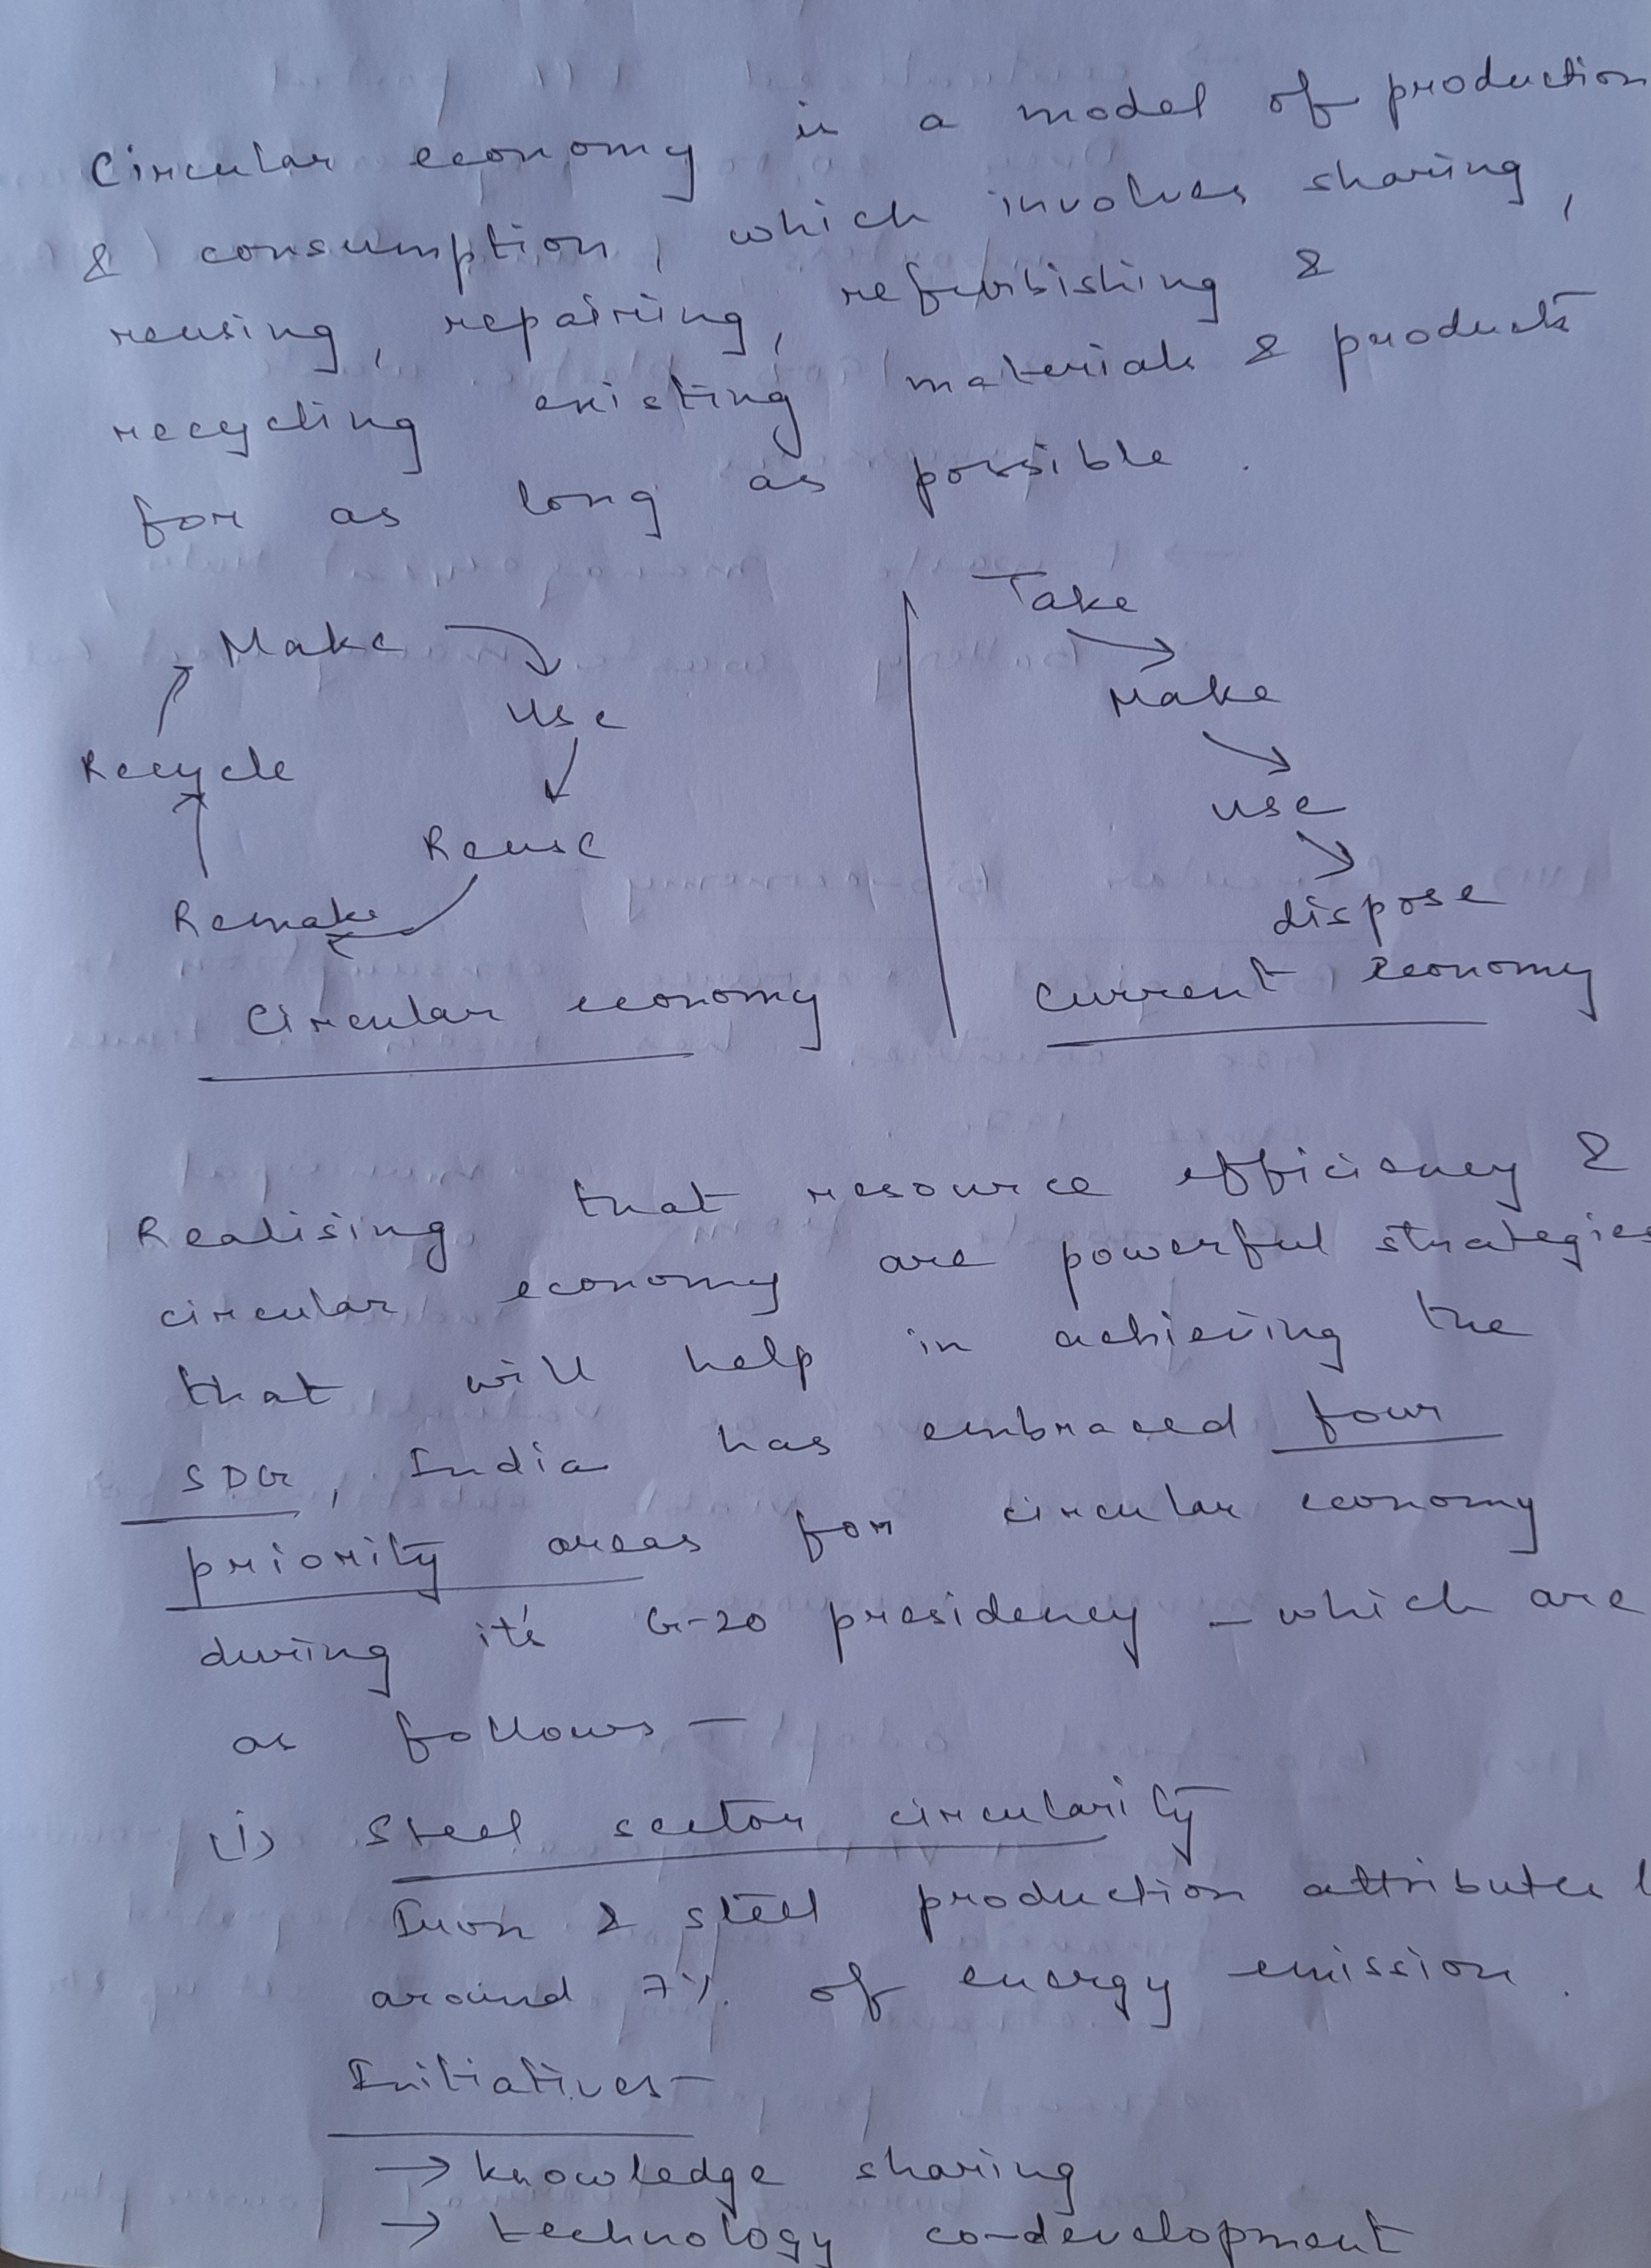 Circular economy is a model of production
& consumption, which involves sharing,
reusing, repairing, refurbishing &
recycling existing materials & products
for as long as possible.
Make
Use
Reuse
Remake
Recycle
Circular economy
Take
Make
use
dispose
Current Economy
Realising that resource efficiency &
circular economy are powerful strategies
that will help in achieving the
SDG, India has embraced four
priority areas for circular economy
during it's G-20 presidency - which are
as follows -
(i) Steel sector circularity
Iron & steel production attributes
around 7% of energy emission.
Initiatives -
→ knowledge sharing
→ technology co-development